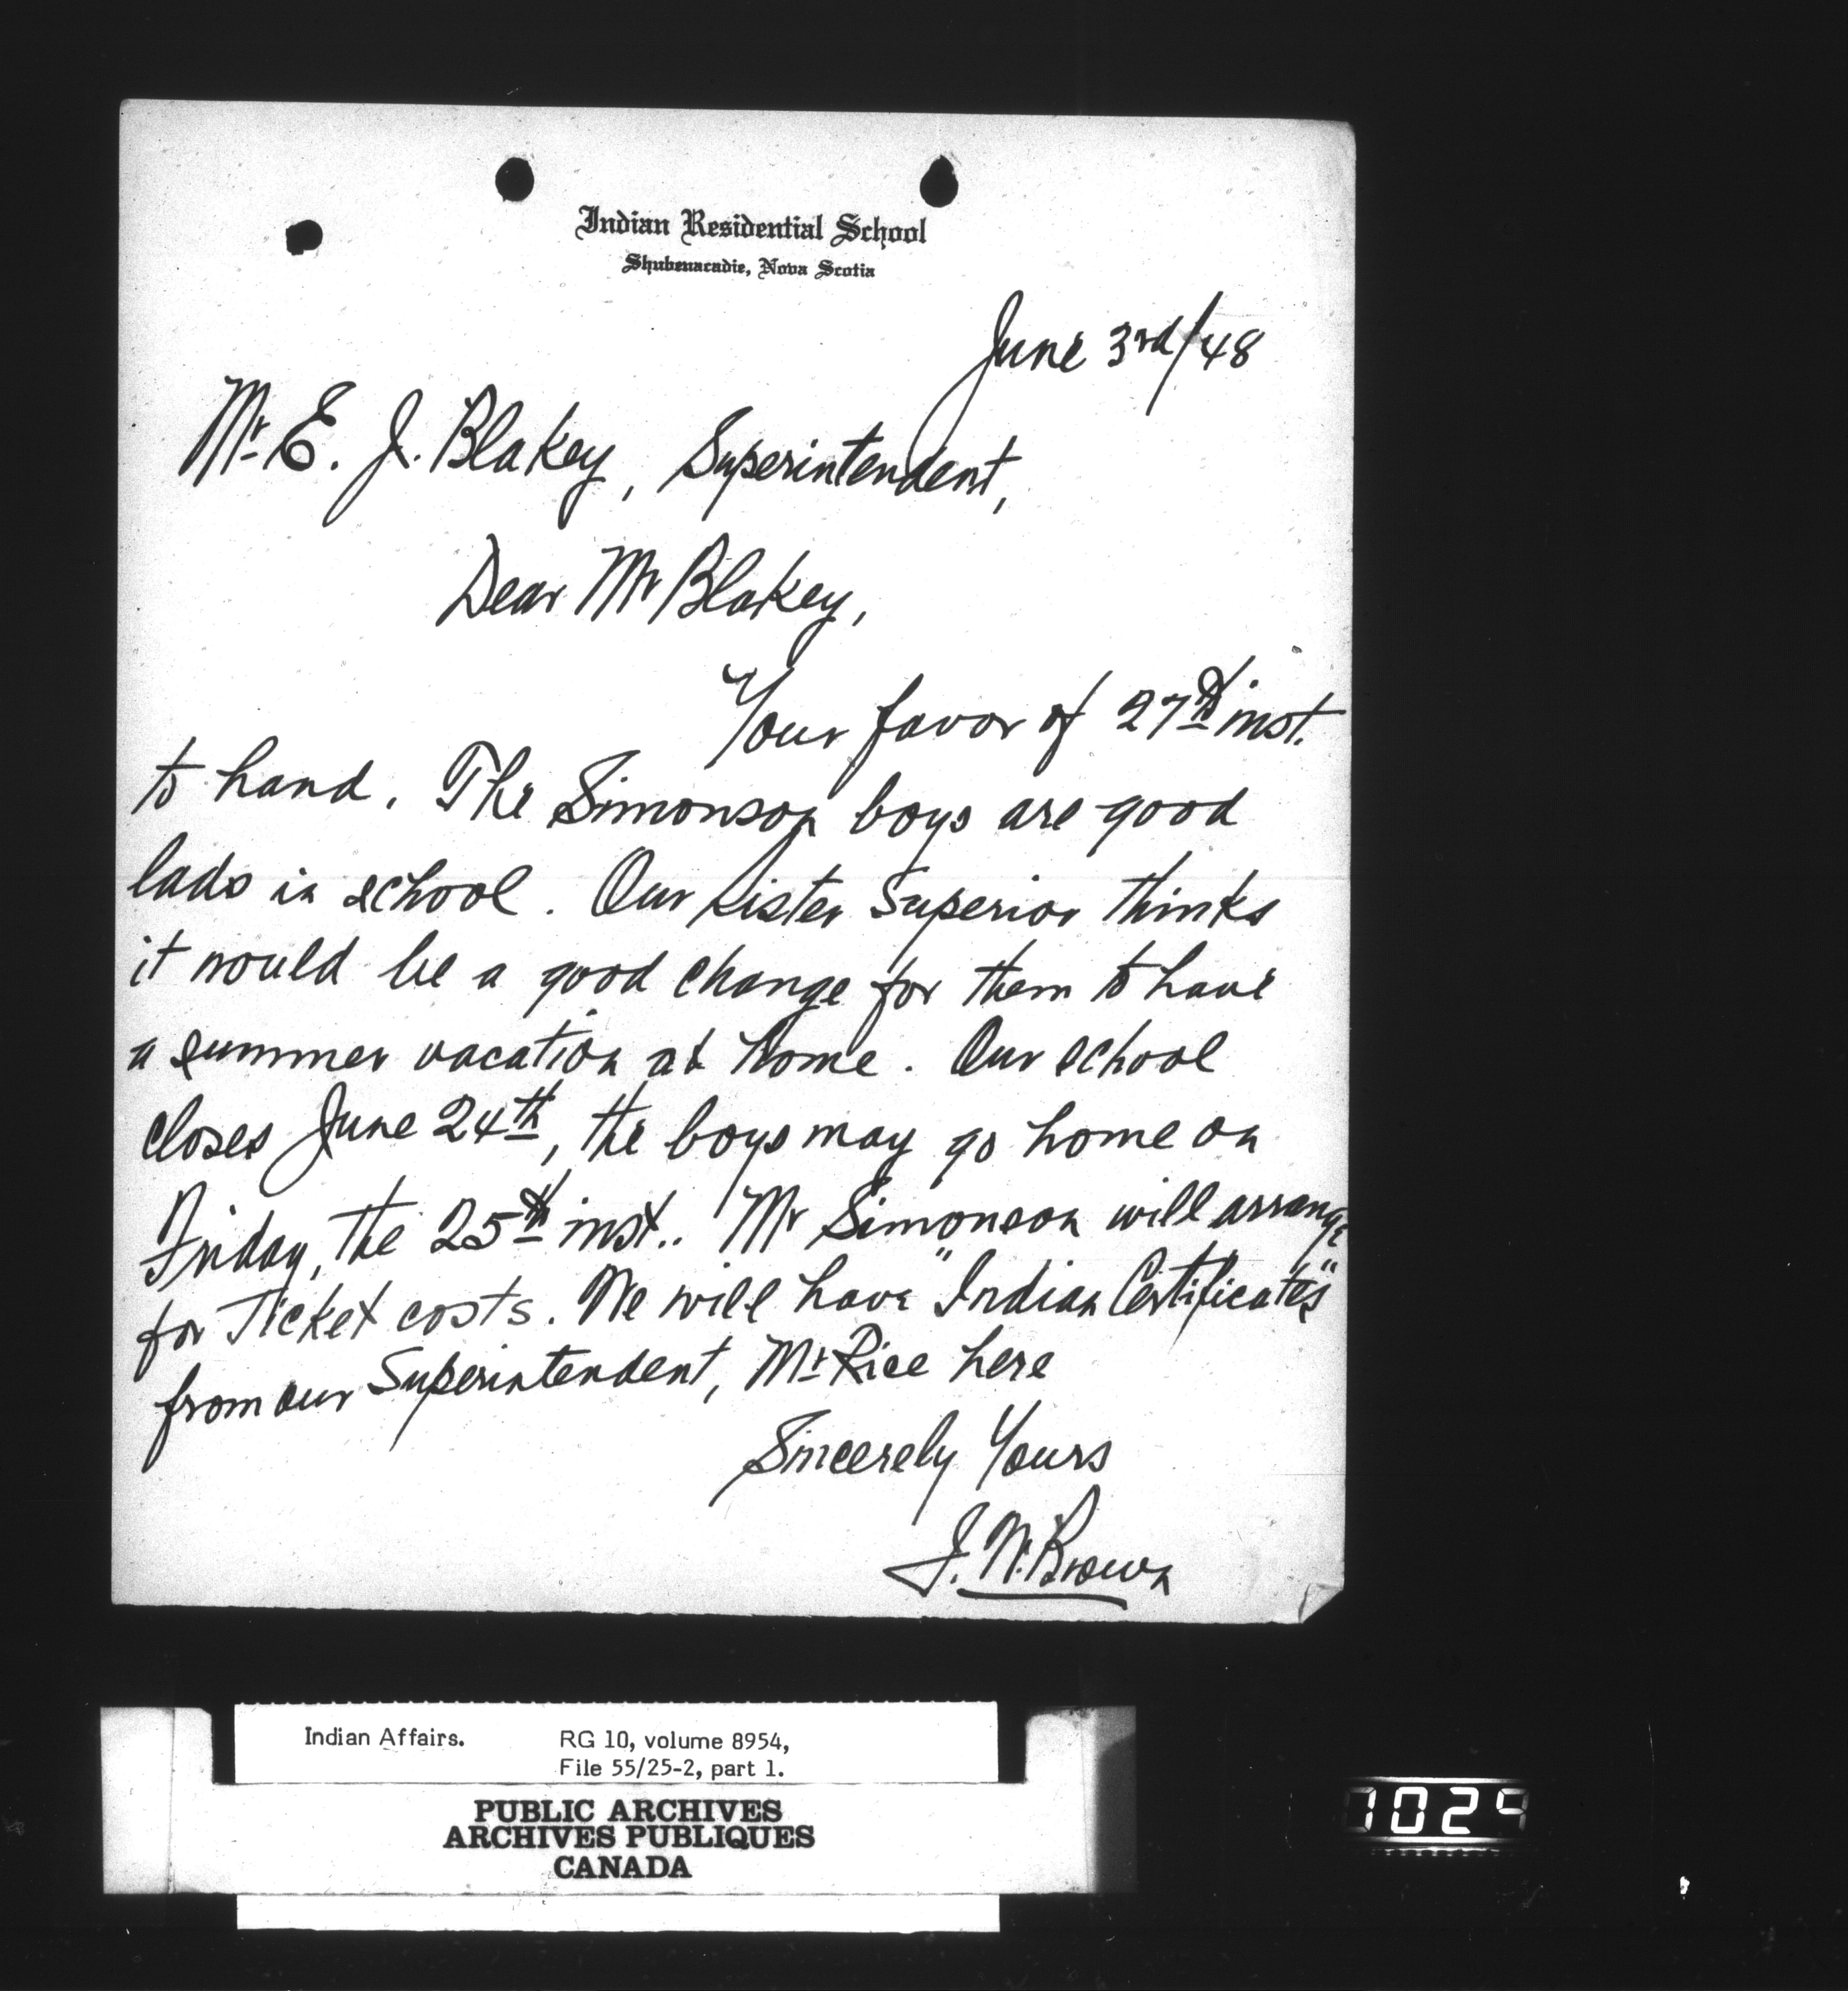 Indian Residential School
Shubenacadie, Nova Scotia
June 3rd/48
Mr. E. J. Blakey, Superintendent,
Dear Mr Blakey,
Your favor of 27th inst.
to hand. The Simonson boys are good
lads in school. Our Sister Superior thinks
it would be a good change for them to have
a summer vacation at home. Our school
closes June 24th, the boys may go home on
Friday, the 25th inst.. Mr Simonson will arrange
for Ticket costs. We will have "Indian Certificates"
from our Superintendent, Mr. Rice here
Sincerely Yours
J. W. Brown
Indian Affairs. RG 10, volume 8954,
File 55/25-2, part 1.
PUBLIC ARCHIVES
ARCHIVES PUBLIQUES
CANADA
1029